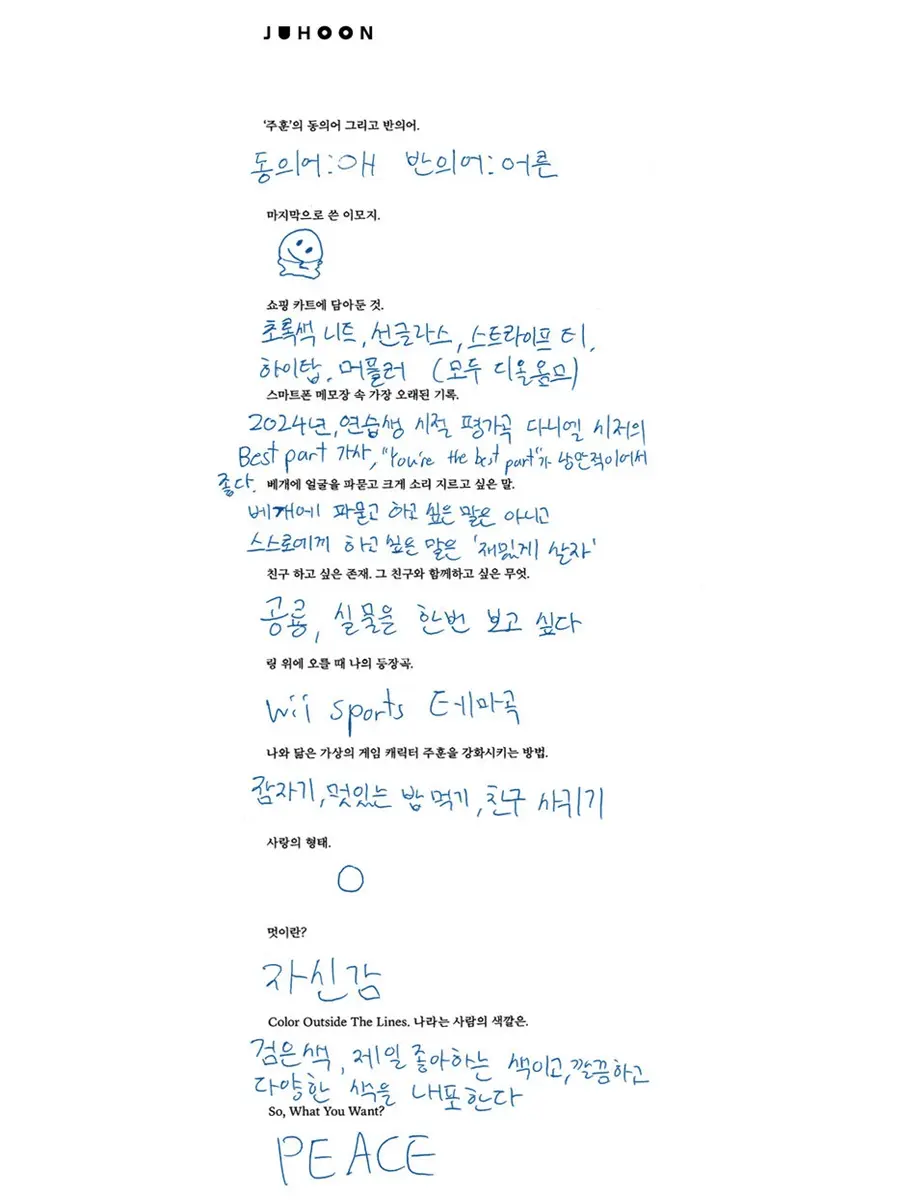 JUHOON
'주훈'의 동의어 그리고 반의어.
동의어:애 반의어:어른
마지막으로 쓴 이모지.
쇼핑 카트에 담아둔 것.
초록색 니트, 선글라스, 스트라이프 티,
하이탑, 머플러 (모두 디올옴므)
스마트폰 메모장 속 가장 오래된 기록.
2024년, 연습생 시절 평가곡 다니엘 시저의
Best part 가사, "You're the best part"가 낭만적이어서
좋다.
베개에 얼굴을 파묻고 크게 소리 지르고 싶은 말.
베개에 파묻고 하고 싶은 말은 아니고
스스로에게 하고 싶은 말은 '재밌게 살자'
친구 하고 싶은 존재. 그 친구와 함께하고 싶은 무엇.
공룡, 실물을 한번 보고 싶다
링 위에 오를 때 나의 등장곡.
Wii sports 테마곡
나와 닮은 가상의 게임 캐릭터 주훈을 강화시키는 방법.
잠자기, 맛있는 밥 먹기, 친구 사귀기
사랑의 형태.
멋이란?
자신감
Color Outside The Lines. 나라는 사람의 색깔은.
검은색, 제일 좋아하는 색이고, 깔끔하고
다양한 색을 내포한다
So, What You Want?
PEACE